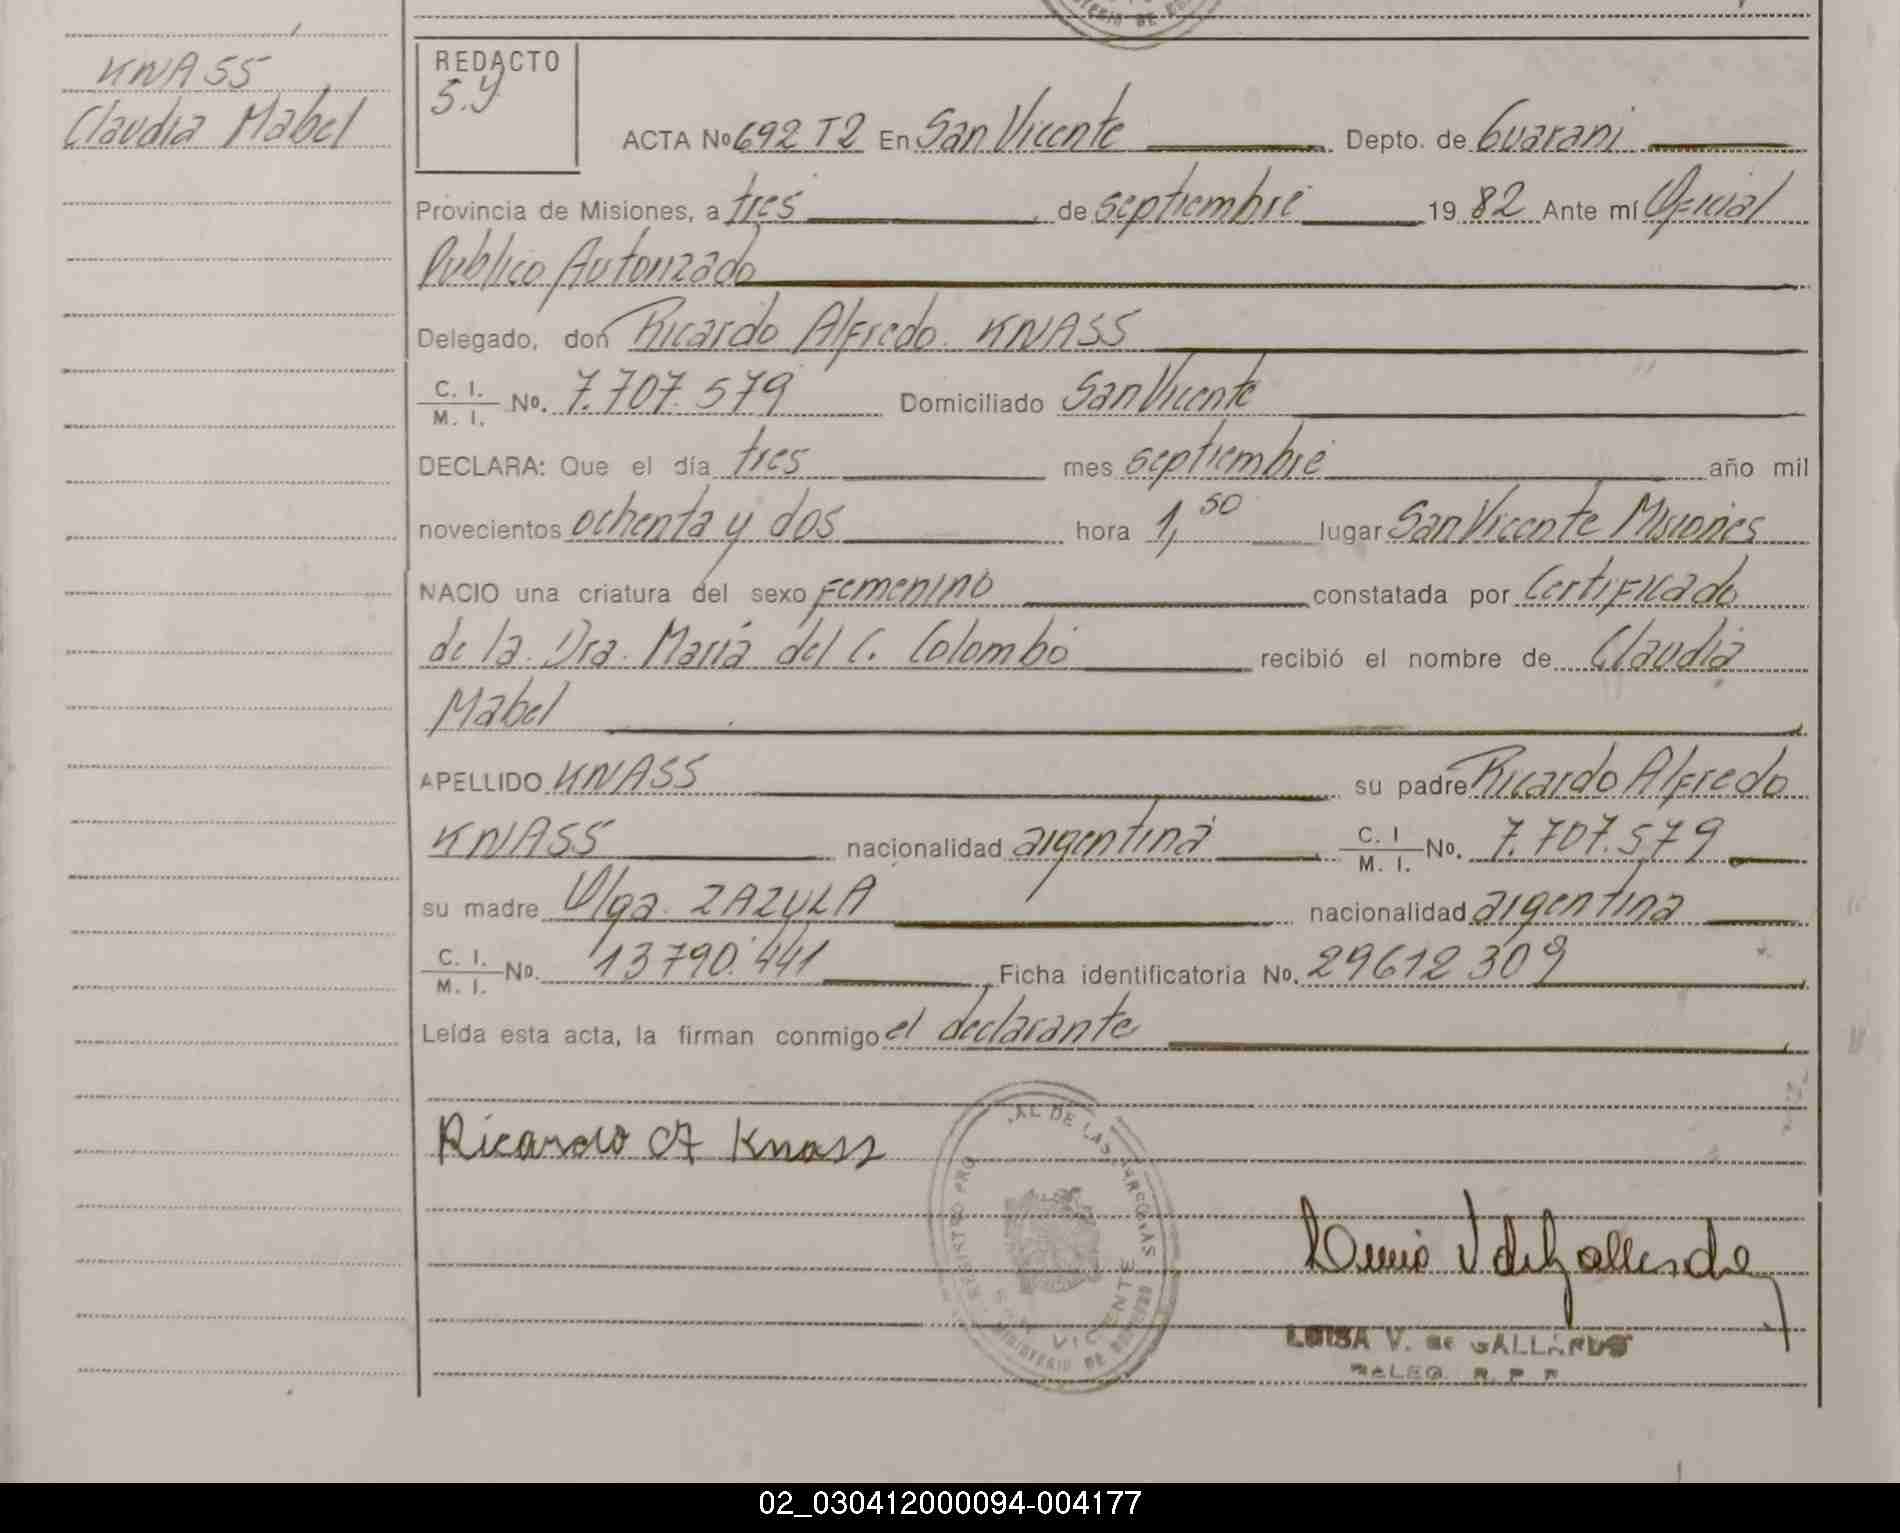 KNASS
Claudia Mabel
REDACTO
S.Y
ACTA No 692 T2 En San Vicente Depto. de Guarani
Provincia de Misiones, a tres de septiembre 19 82 Ante mí Oficial
Publico Autorizado
Delegado, don Ricardo Alfredo KNASS
C. I. / M. I. No. 7.707.579 Domiciliado San Vicente
DECLARA: Que el día tres mes septiembre año mil
novecientos ochenta y dos hora 1,50 lugar San Vicente Misiones
NACIO una criatura del sexo Femenino constatada por Certificado
de la Dra. María del C. Colombo recibió el nombre de Claudia
Mabel
APELLIDO KNASS su padre Ricardo Alfredo
KNASS nacionalidad argentina C. I / M. I. No. 7.707.579
su madre Olga ZAZULA nacionalidad argentina
C. I. / M. I. No. 13790.441 Ficha identificatoria No. 29612309
Leída esta acta, la firman conmigo el declarante
Ricardo A Knass
AL DE LAS
SAN VICENTE
MINISTERIO DE
LUISA V. DE GALLARDO
DELEG. R. P. P.
02_030412000094-004177